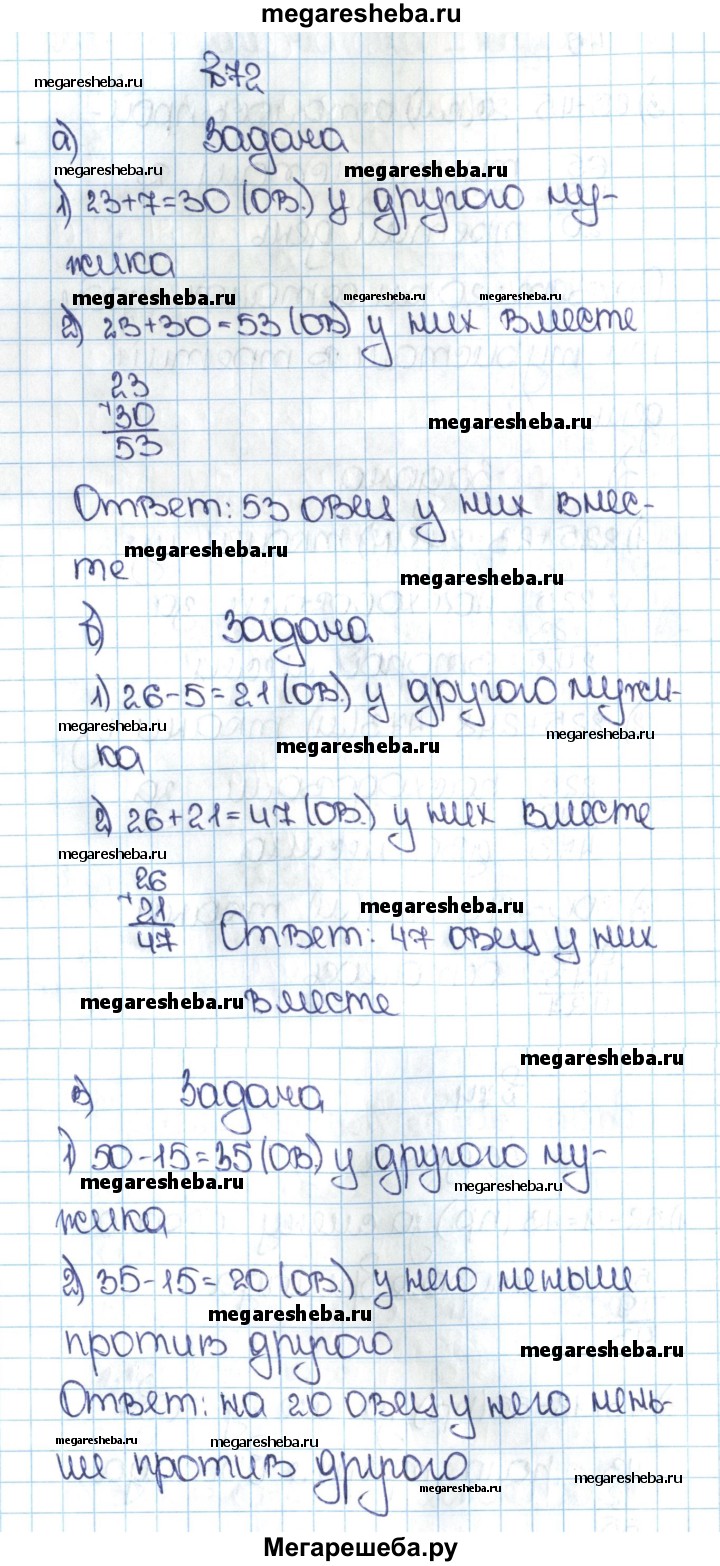 megaresheba.ru
872
megaresheba.ru
а) Задача
megaresheba.ru
megaresheba.ru
1) 23+7=30 (ов.) у другого му-
жика
megaresheba.ru
megaresheba.ru
megaresheba.ru
2) 23+30=53 (ов) у них вместе
23
+30
53
megaresheba.ru
Ответ: 53 овец у них вмес-
megaresheba.ru
те
megaresheba.ru
б) Задача
1) 26-5=21 (ов.) у другого мужи-
megaresheba.ru
megaresheba.ru
ка
megaresheba.ru
2) 26+21=47 (ов.) у них вместе
megaresheba.ru
26
+21
47
megaresheba.ru
Ответ: 47 овец у них
megaresheba.ru вместе
megaresheba.ru
в) Задача
1) 50-15=35 (ов) у другого му-
megaresheba.ru
megaresheba.ru
жика
2) 35-15=20 (ов.) у него меньше
megaresheba.ru
против другого
megaresheba.ru
Ответ: на 20 овец у него мень-
megaresheba.ru
megaresheba.ru
ше против другого
megaresheba.ru
megaresheba.ru
Мегарешеба.ру